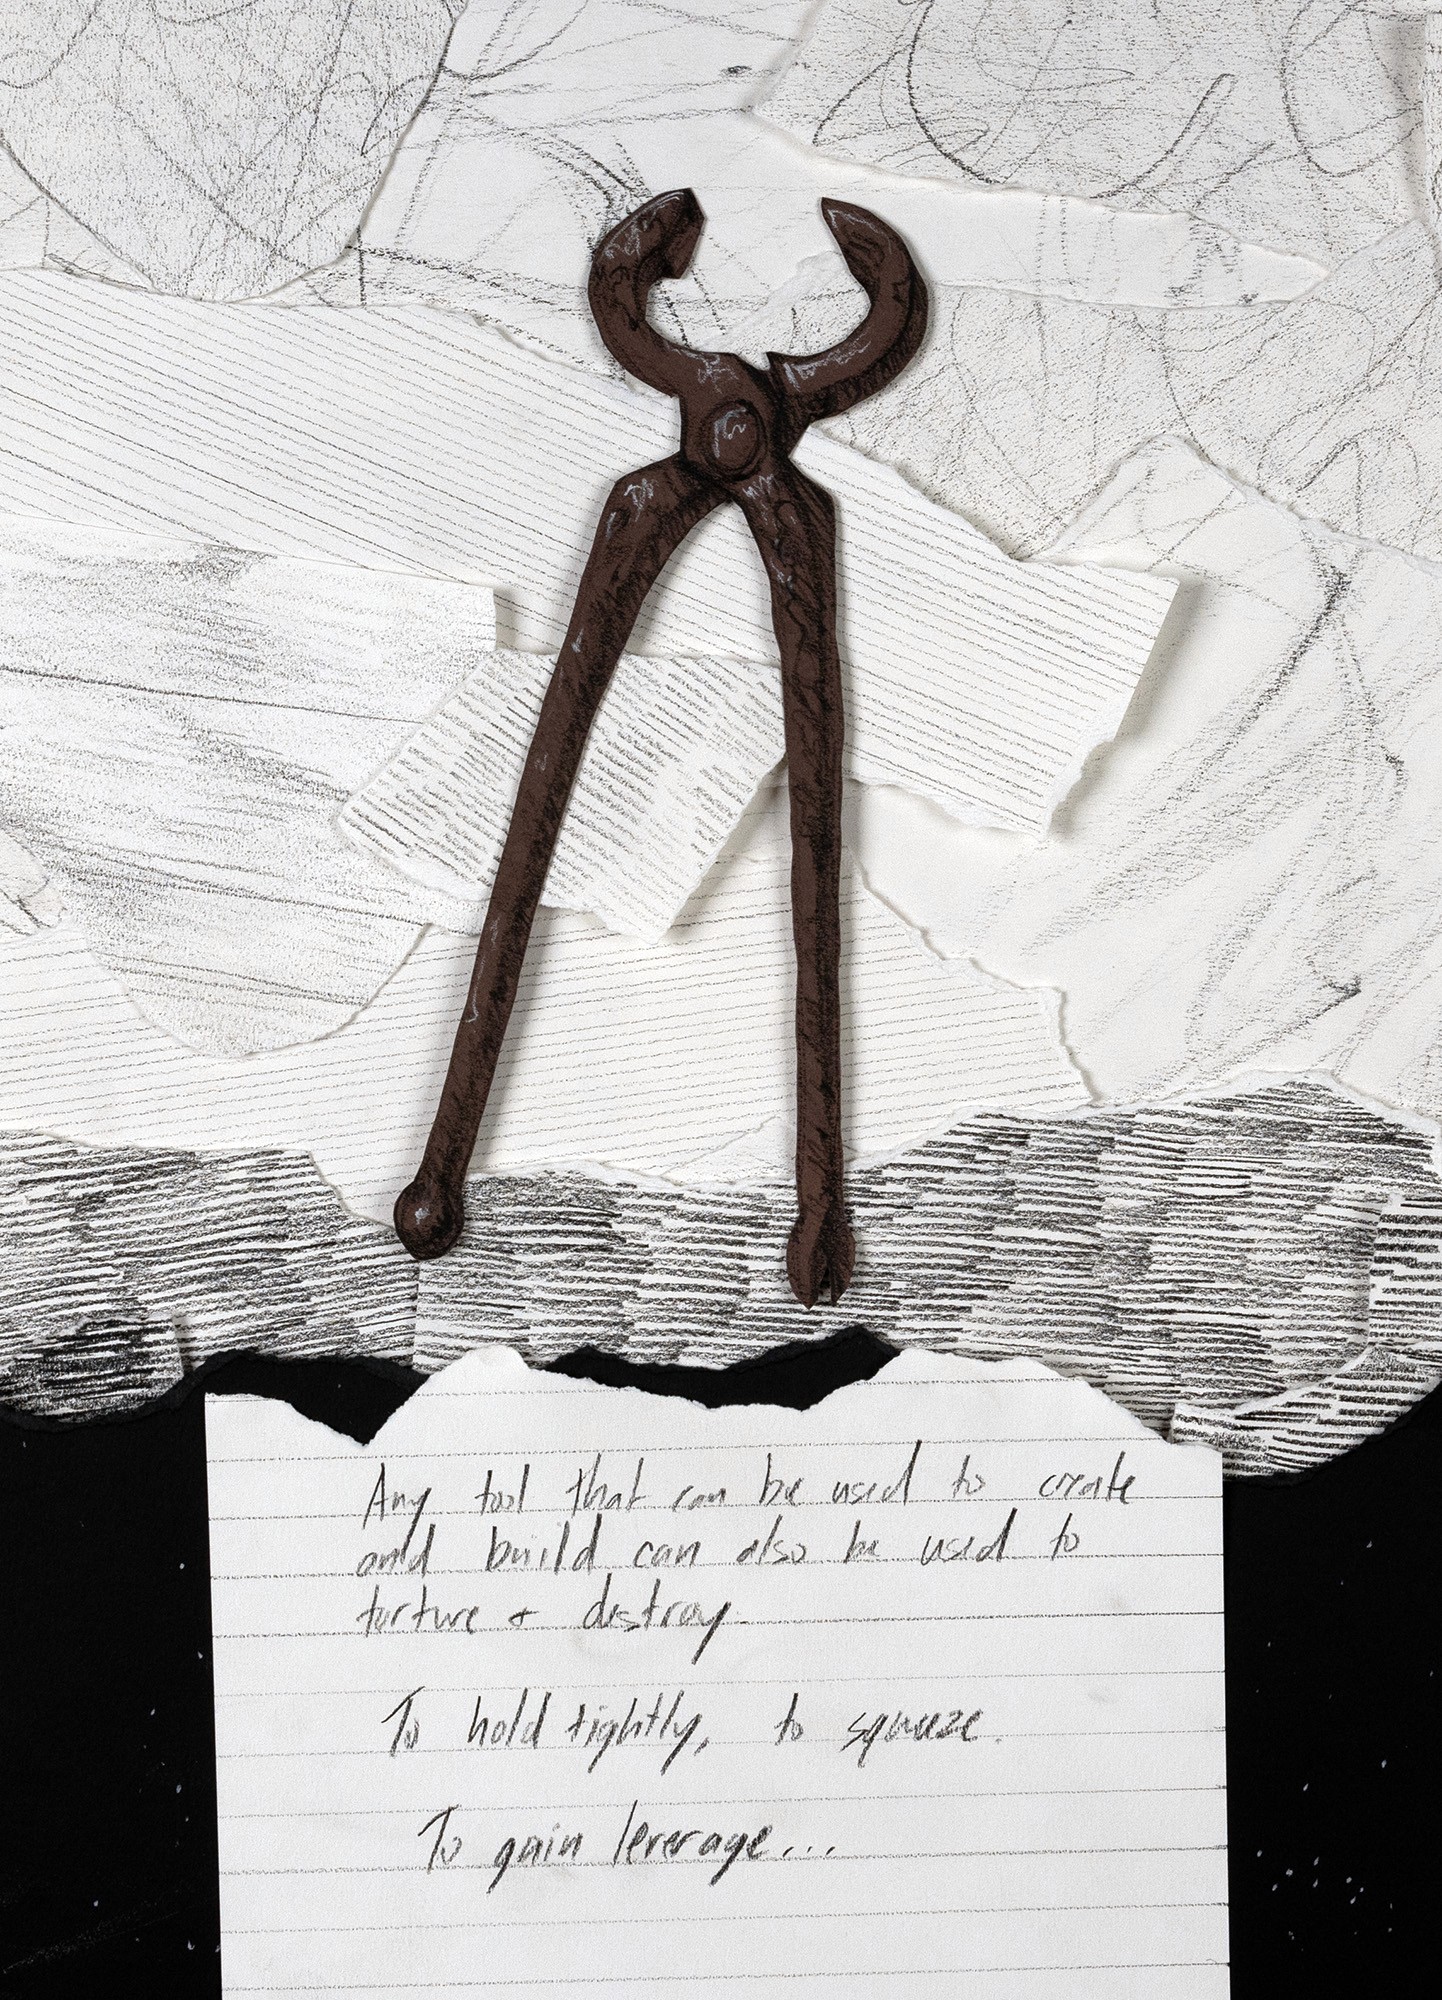 Any tool that can be used to create
and build can also be used to
torture + destroy.
To hold tightly, to squeeze.
To gain leverage...